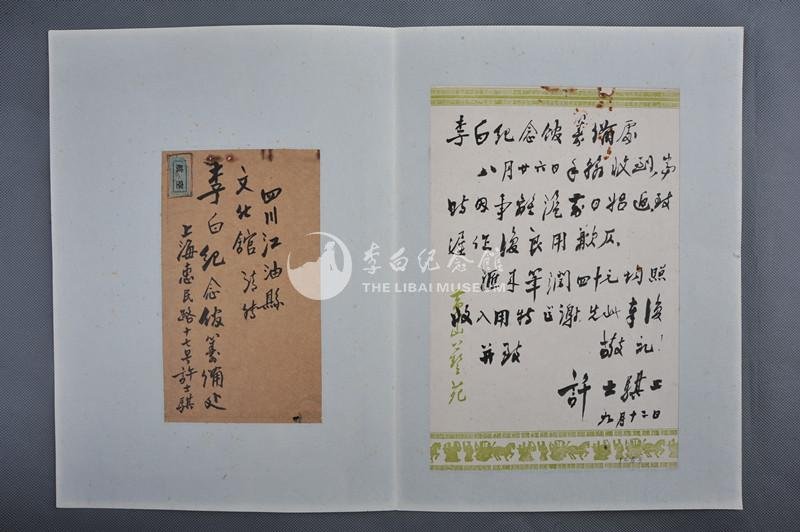 四川江油縣
文化館 請轉
李白紀念館籌備处
上海惠民路十七号許士騏
李白紀念館籌備處
八月廿六日手翰收到,當
時因事離滬,前日始返,致
遲作復,良用歉仄。
匯來筆潤四十元,均照
收入用特-謝。先此奉復
并致 敬礼!
許士騏上
九月十二日
黃山藝苑
李白紀念館
THE LIBAI MUSEUM